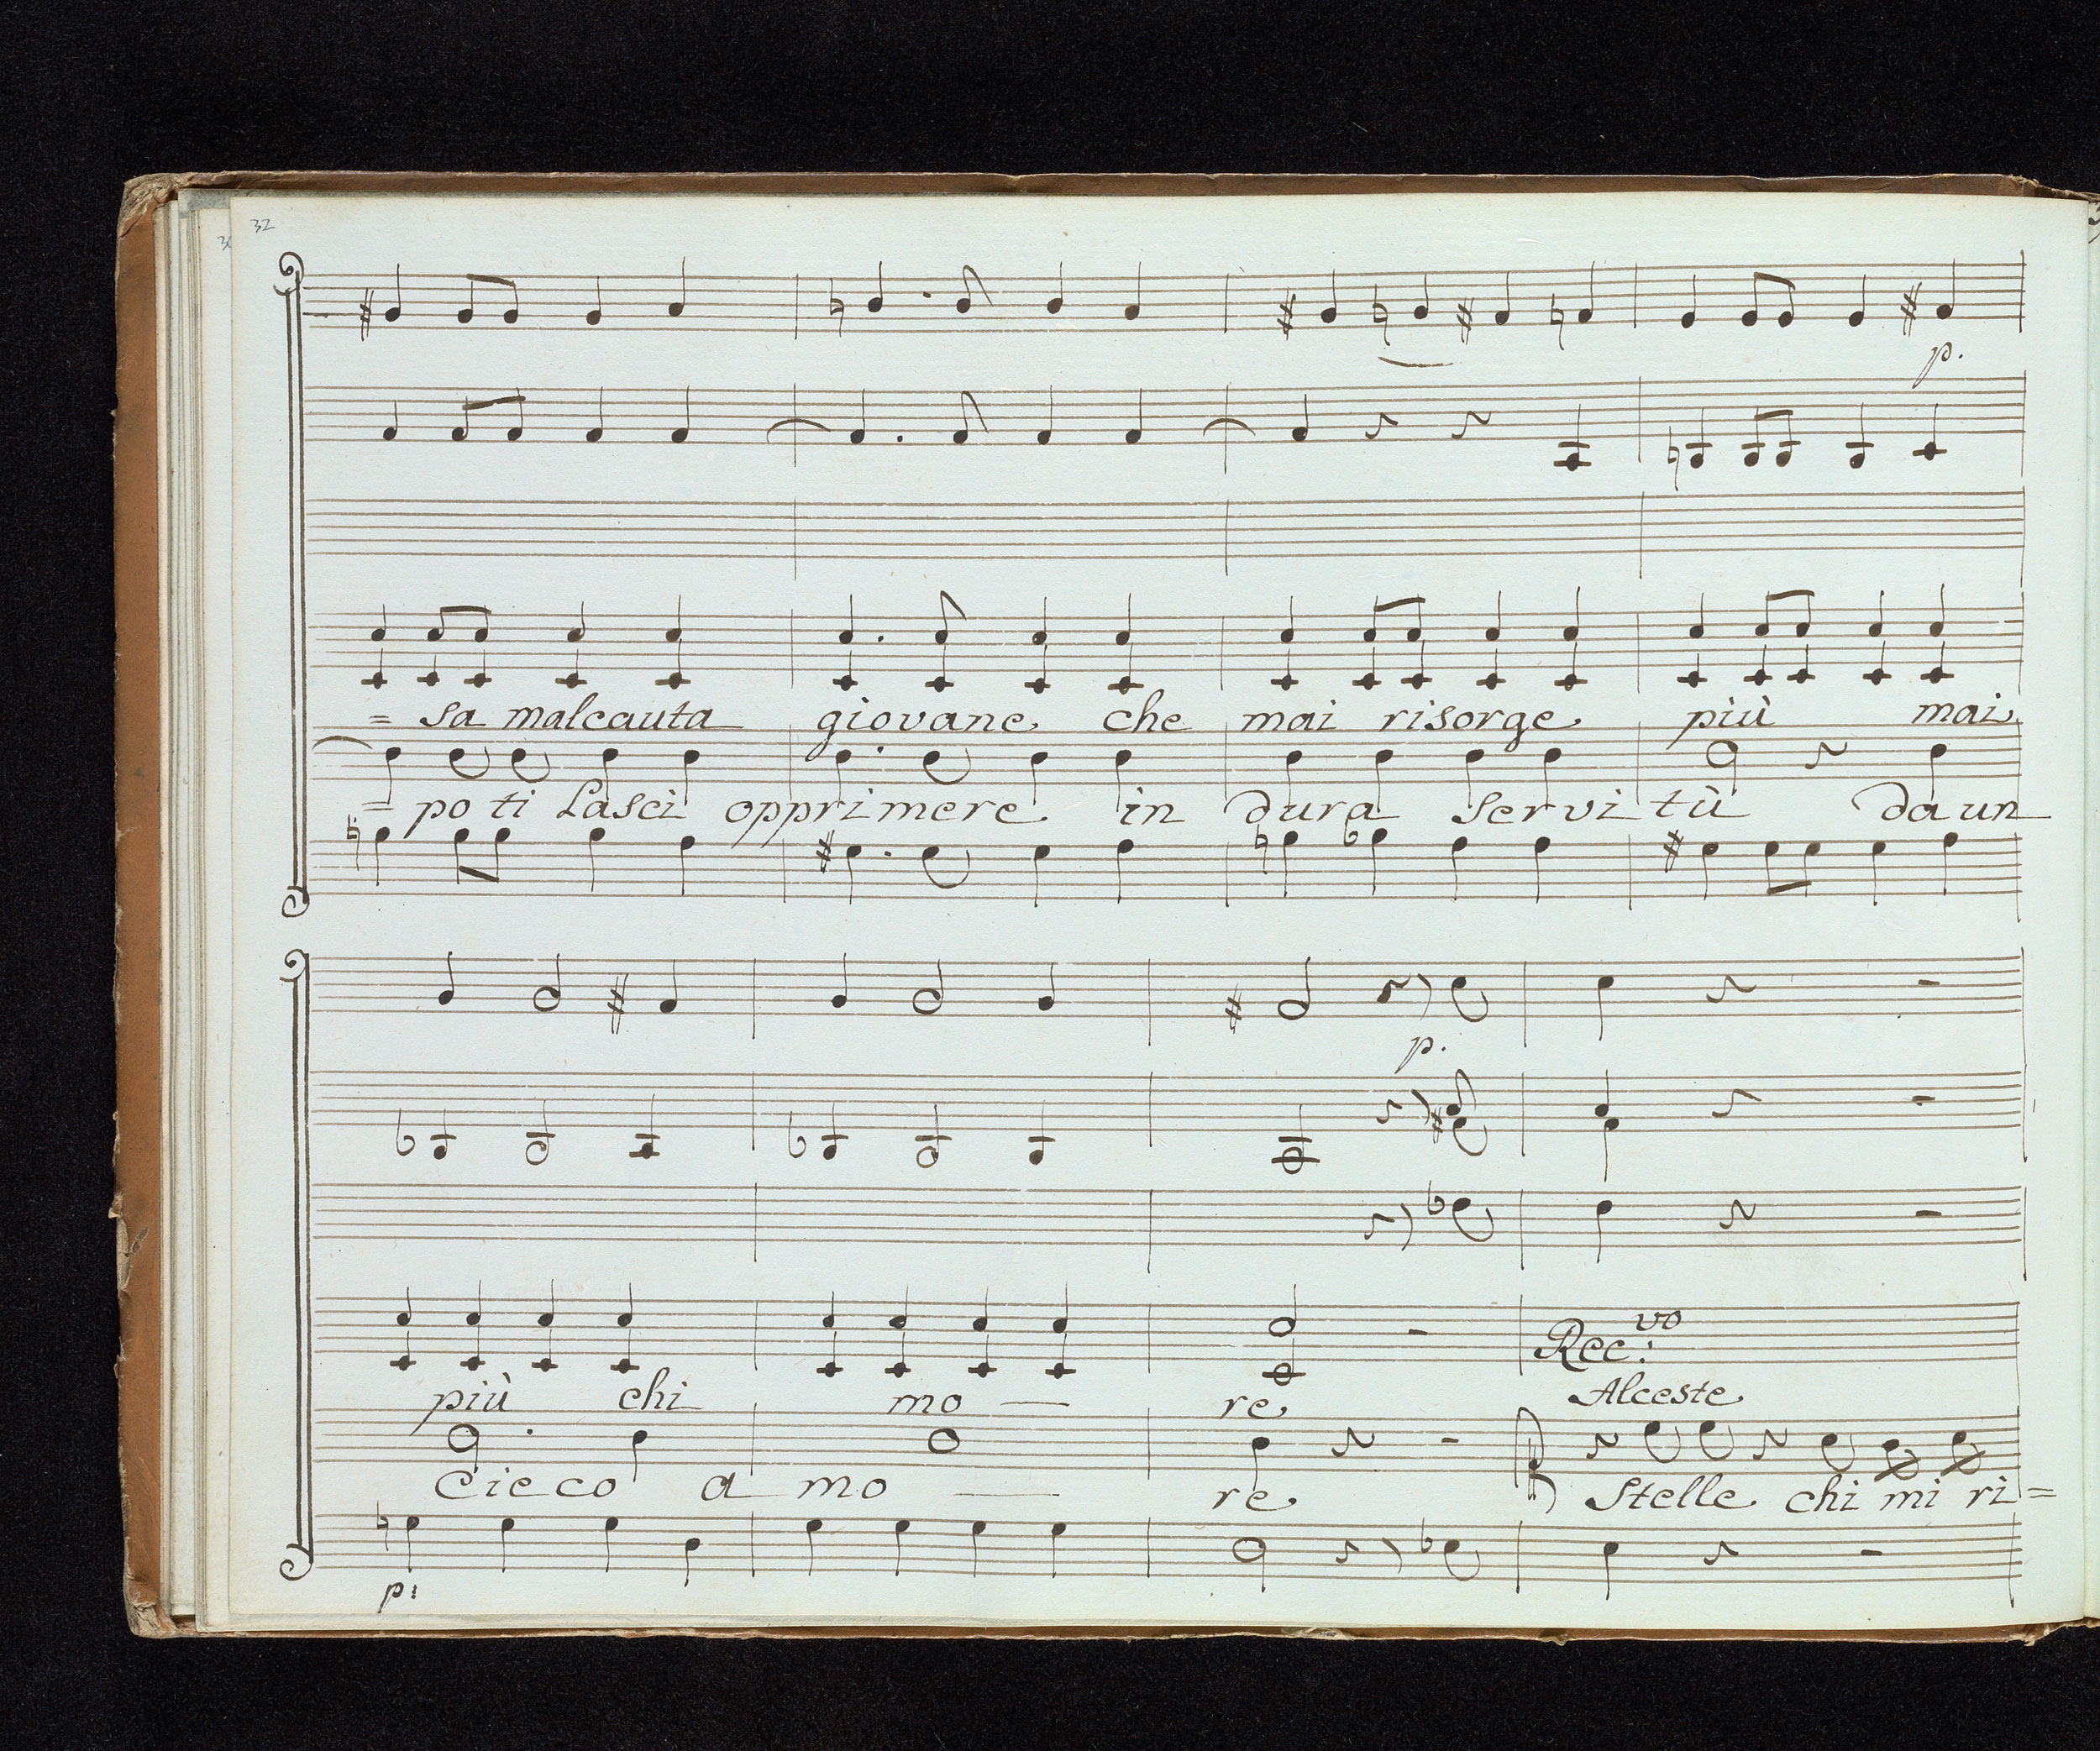 32
p.
= sa malcauta giovane che mai risorge più mai
= po ti Lasci opprimere in dura servi tù da un
p.
Rec:vo
più chi mo — re Alceste
Cieco a mo — re Stelle chi mi ri =
p: